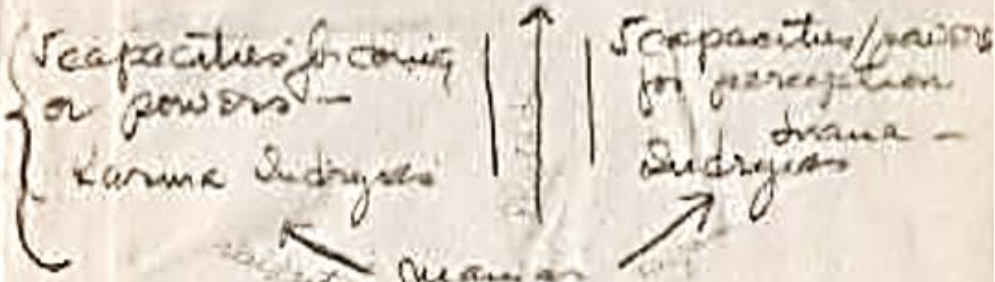 5 capacities for doing
or powers -
Karma Indryas
5 capacities/powers
for perception
Jnana -
Indryas
Manas